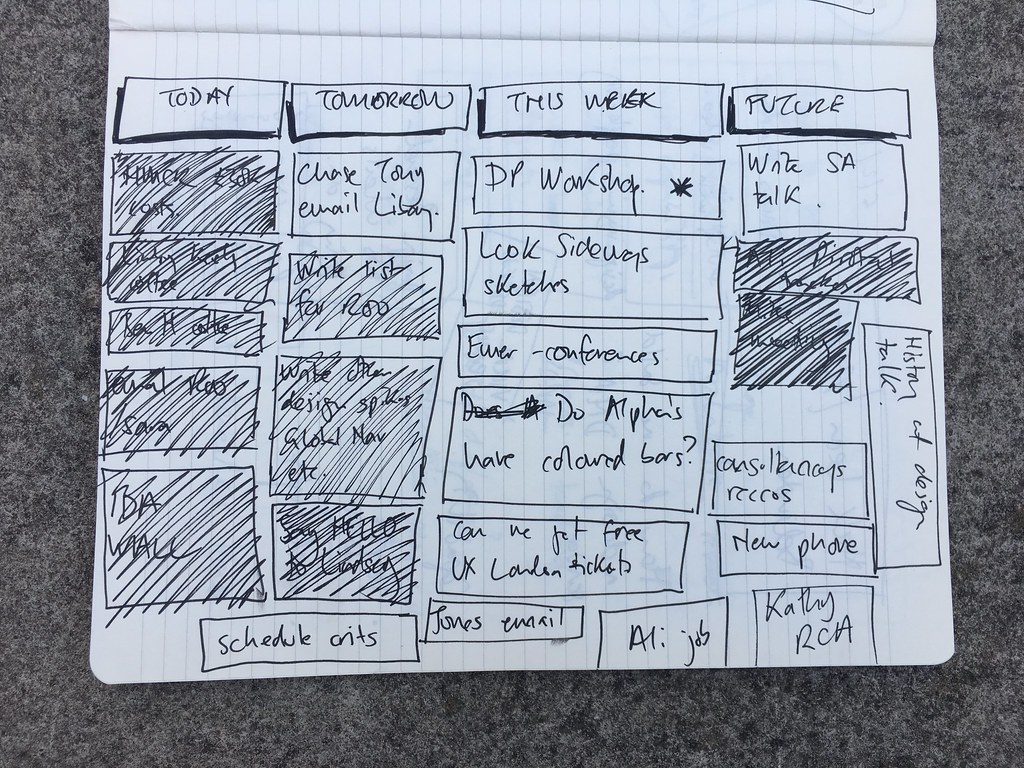 TODAY
TOMORROW
THIS WEEK
FUTURE
costs.
coffee
Ben H coffee
email ROO
Sara
TBA
WALL
Chase Tony
email Libby.
Write list
for ROO
Write
design spikes
Global Nav
etc.
Say HELLO
to Lindsey
DP Workshop.
Look Sideways
sketches
Emer - conferences
Do Alpha's
have coloured bars?
Can we get free
UX London tickets
Write SA
talk.
weekly
History at design
talk.
consultancys
reccos
New phone
schedule crits
Jones email
Ali job
Kathy
RCA